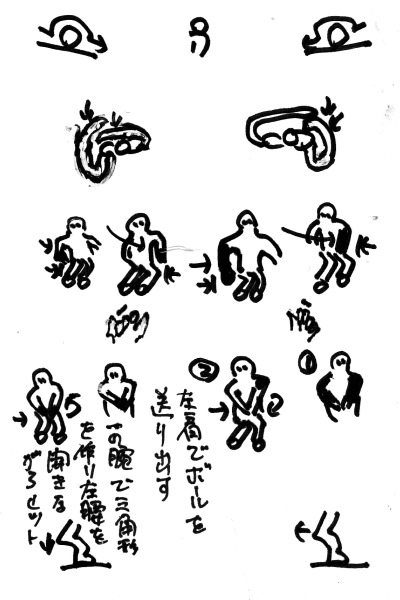 ①
②
左肩でボールを
送り出す
の腕で三角形
を作り左腰を
開きな
がらヒット